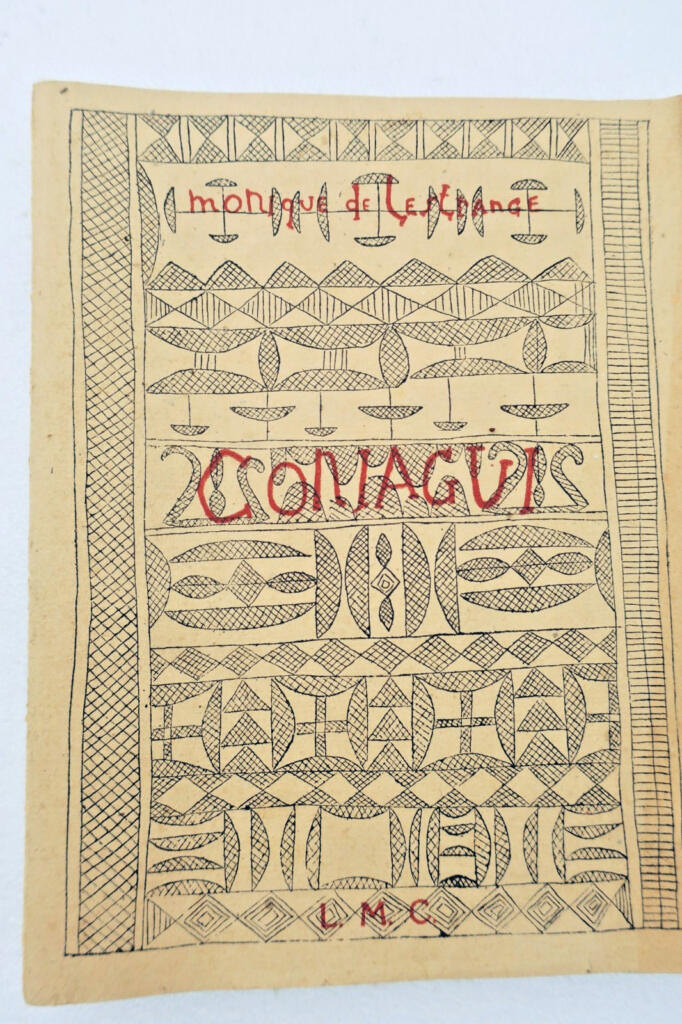 monique de Lestrange
CONIAGUI
L. M. C.